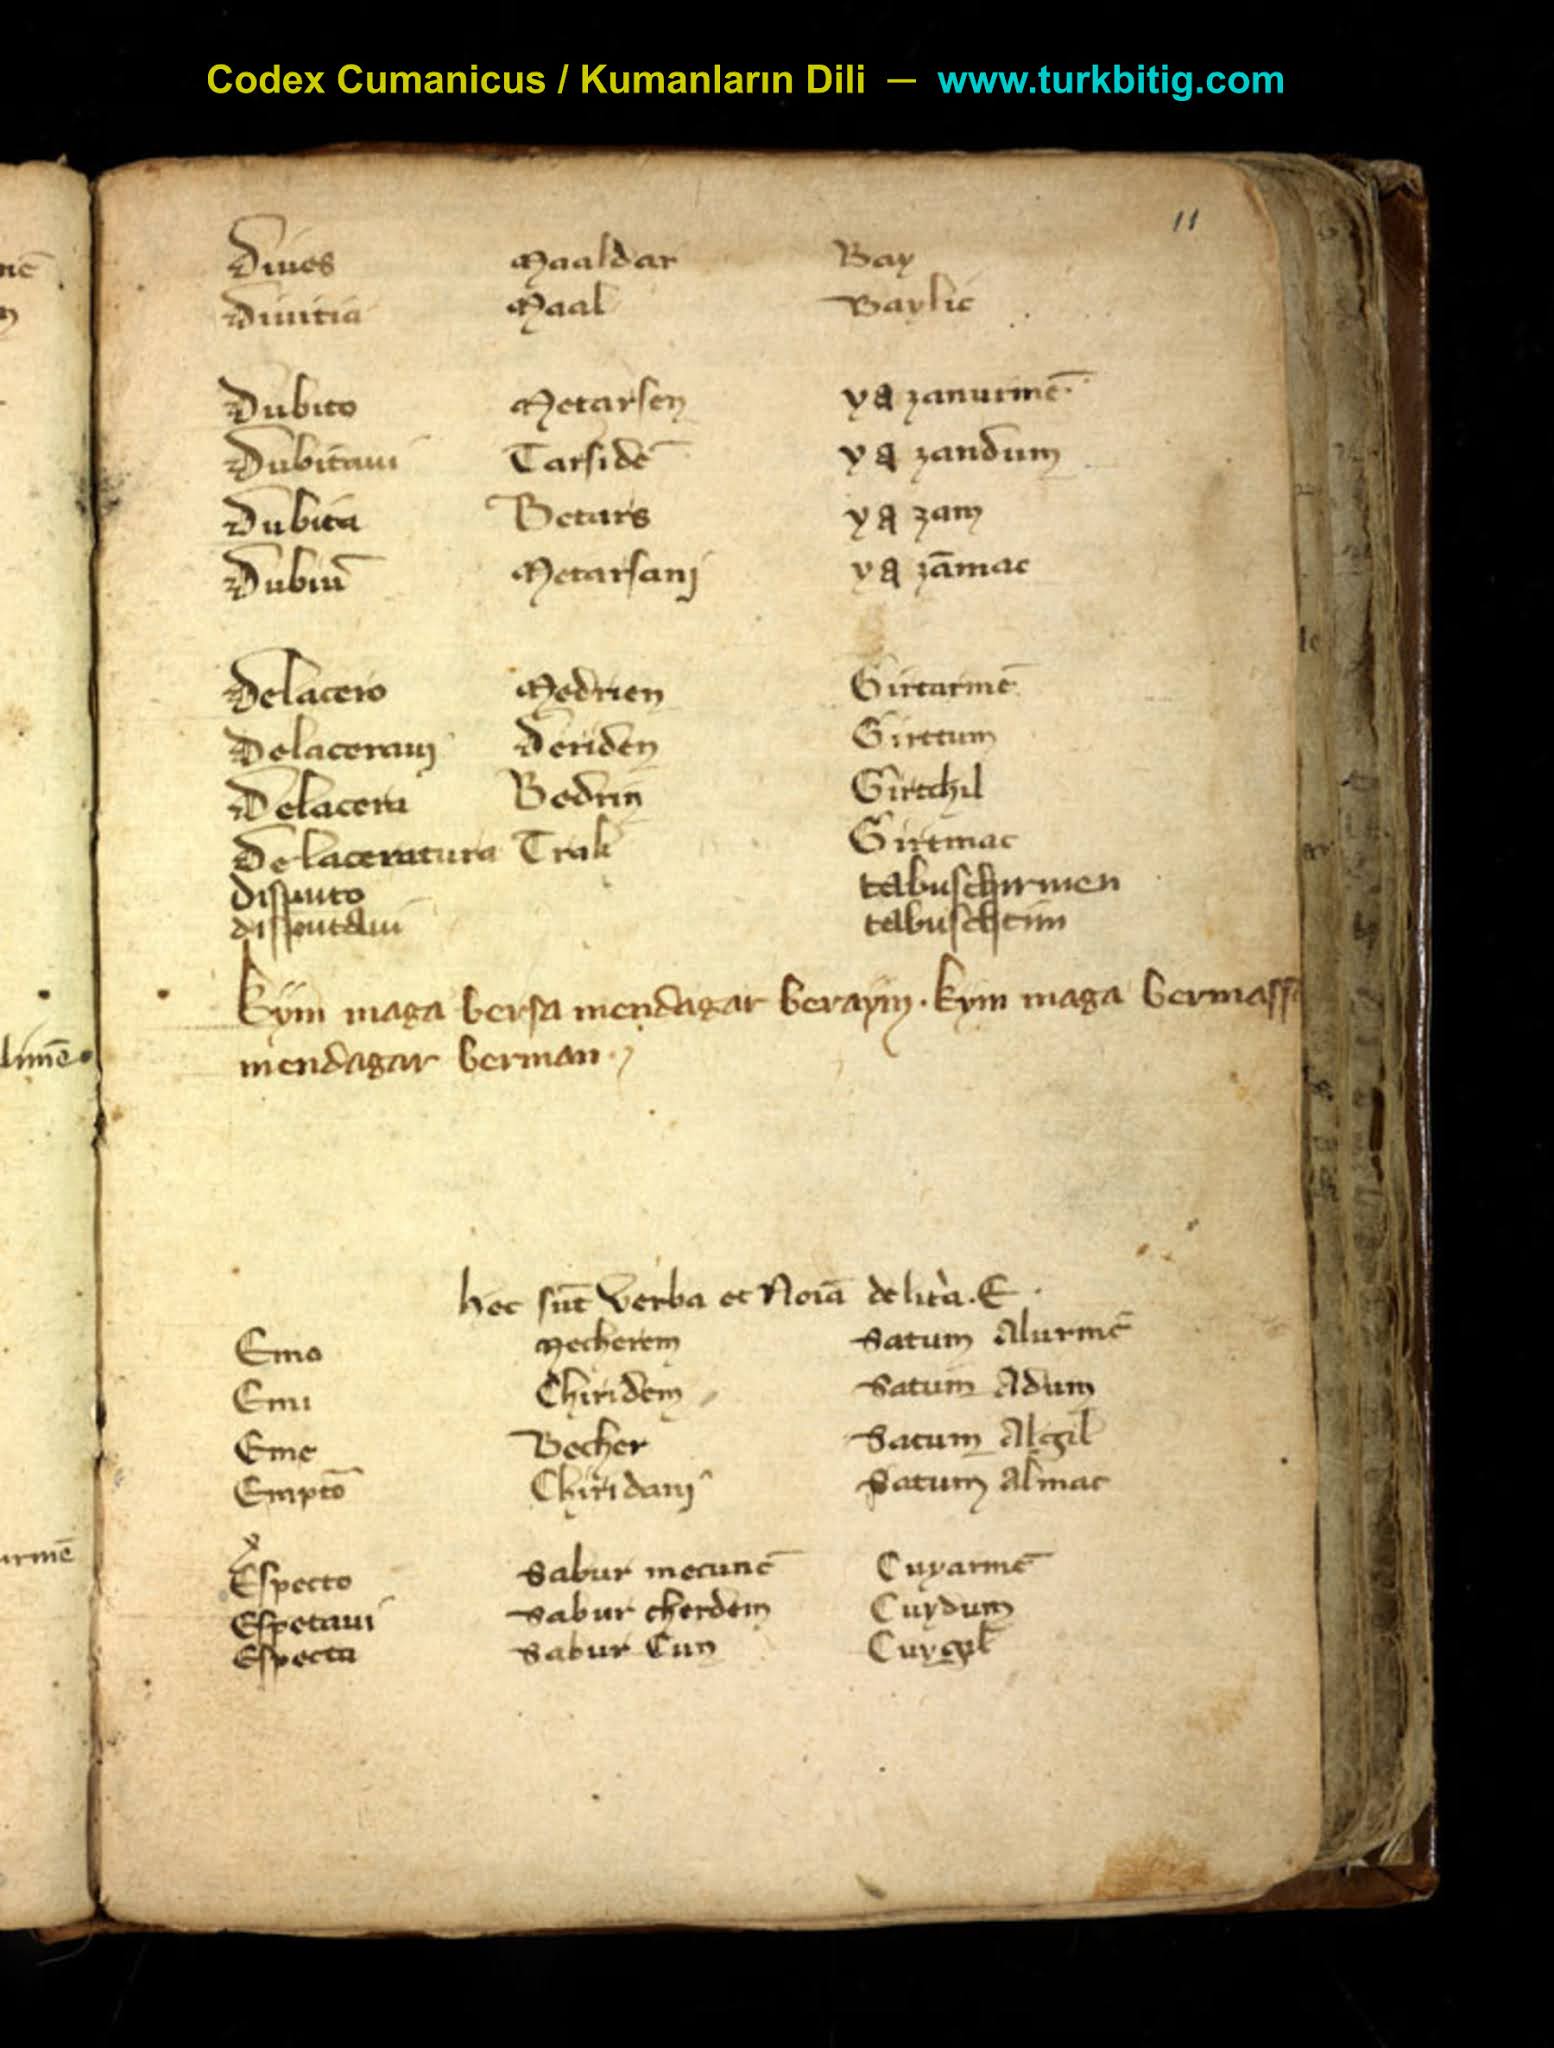 Codex Cumanicus / Kumanların Dili — www.turkbitig.com
11
Diues Maaldar Bay
Diuitia Maal Baylic
Dubito Metarsen ya zanurmē
Dubitaui Tarsidē ya zandum
Dubita Betars ya zam
Dubiū Metarsanj ya zāmac
Delacero Medrien Girtarmē
Delaceraui Deriden Girttum
Delacera Bedrin Girtchil
Delaceratura Trak Girtmac
disputo tabuschurmen
disputaui tabuschtim
kÿm maga bersa mendagar berayim. kÿm maga bermassa
mendagar berman
hec sūt verba et Noiā de litera. E.
Emo Mecherem Satum Alurmē
Emi Chiridem Satum Adum
Eme Becher Satum Algil
Emptō Chiridanj Satum Almac
Especto Sabur mecunē Cuyarmē
Espetaui Sabur cherdem Cuydum
Especta Sabur Cun Cuygil